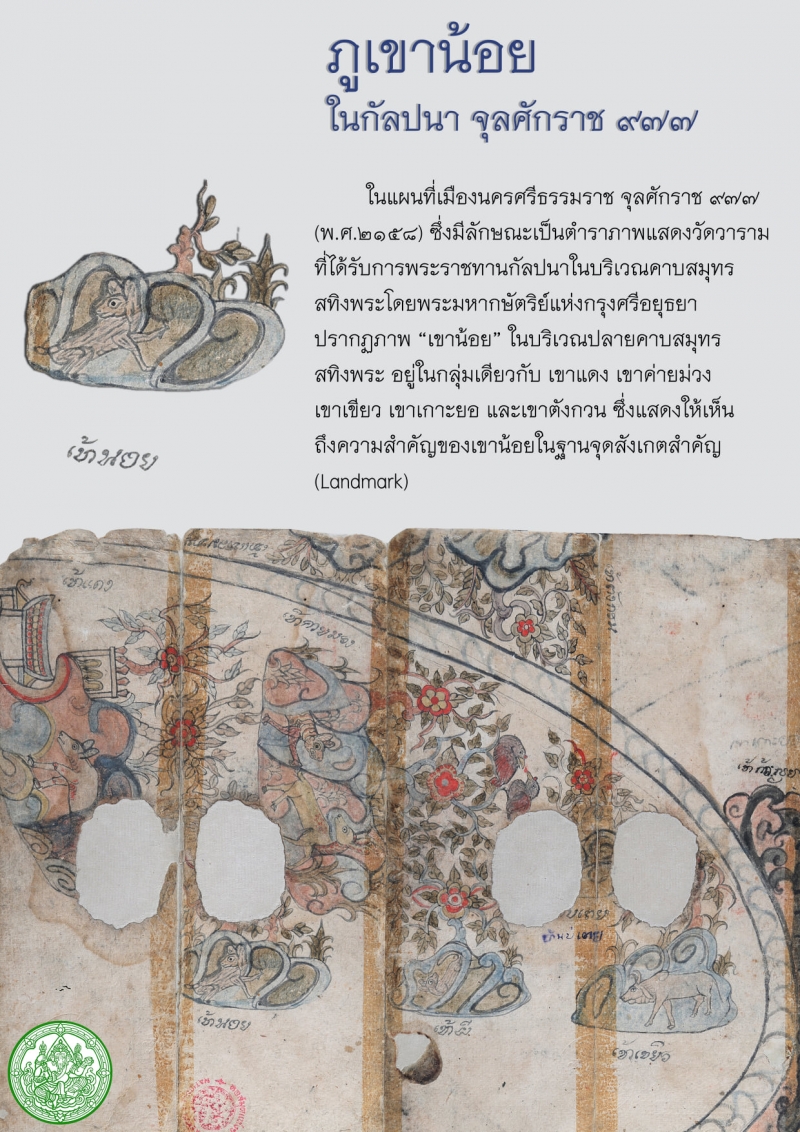 ภูเขาน้อย
ในกัลปนา จุลศักราช ๙๗๗
ในแผนที่เมืองนครศรีธรรมราช จุลศักราช ๙๗๗
(พ.ศ.๒๑๕๘) ซึ่งมีลักษณะเป็นตำราภาพแสดงวัดวาราม
ที่ได้รับการพระราชทานกัลปนาในบริเวณคาบสมุทร
สทิงพระโดยพระมหากษัตริย์แห่งกรุงศรีอยุธยา
ปรากฏภาพ “เขาน้อย” ในบริเวณปลายคาบสมุทร
สทิงพระ อยู่ในกลุ่มเดียวกับ เขาแดง เขาค่ายม่วง
เขาเขียว เขาเกาะยอ และเขาตังกวน ซึ่งแสดงให้เห็น
ถึงความสำคัญของเขาน้อยในฐานจุดสังเกตสำคัญ
(Landmark)
เข้านอย
เข้าแดง
เข้านอย
เข้าเขยีว